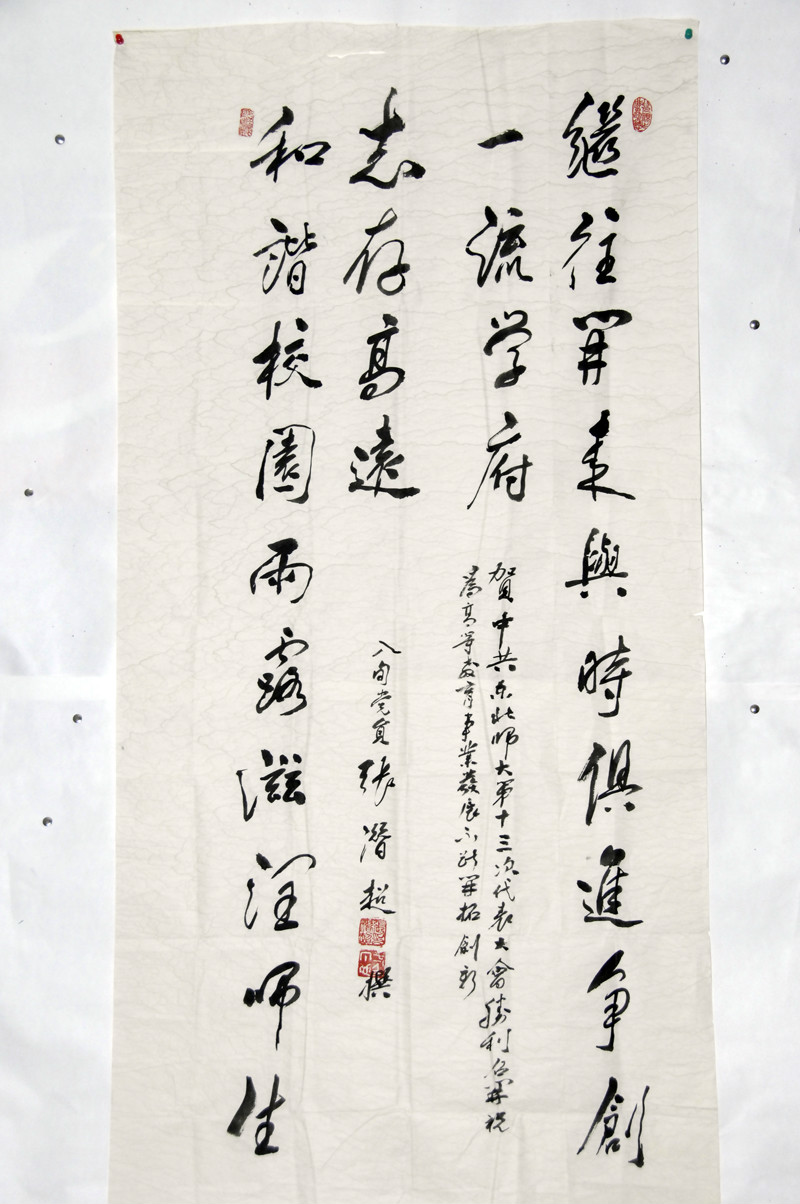 繼往開來與時俱進争創
一流学府
贺中共东北师大第十三次代表大會勝利召開祝
為高等教育事業發展不断開拓創新
和諧校園雨露滋润师生
志存高遠
八旬党員張潛超撰